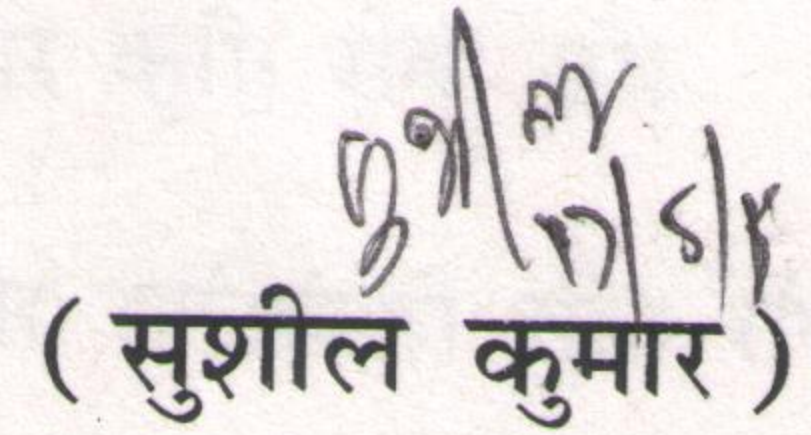 सुशील
( सुशील कुमार )